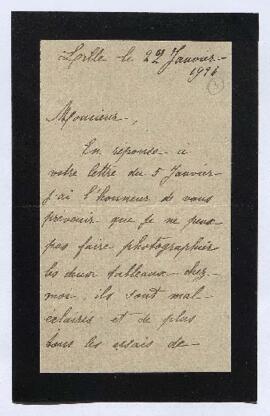 le 22 Janvier
Monsieur,
En réponse a
votre lettre du 5 Janvier
j'ai l'honneur de vous
prevenir que je ne peux
pas faire photographier
les deux tableaux chez
moi, ils sont mal
eclaires et de plus
tous les essais de